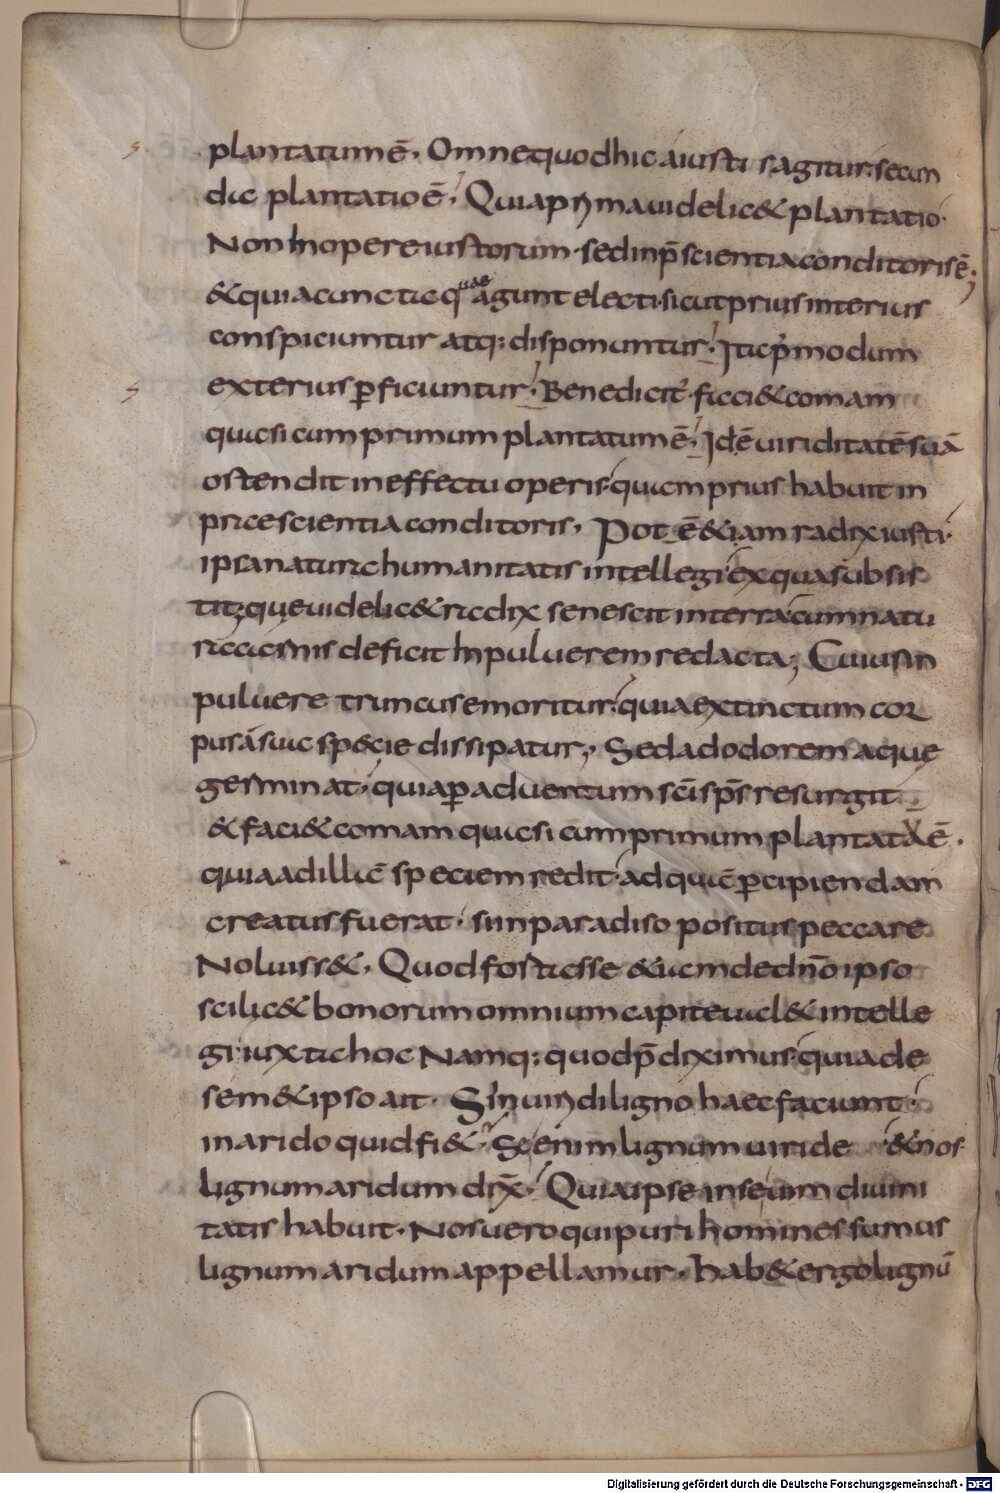 plantatum ē. Omne quod hic a iustis agitur secun
da plantatio ē. Quia prima videlic& plantatio
Non in opere iustorum. sed in p̄scientia conditoris ē;
& quia cuncta quae agunt electi. sicut prius interius
conspiciuntur atq: disponuntur. Ita p̾modum
exterius ꝑficiuntur. Bene dicit̾. faci& comam
quasi cum primum plantatum ē. Idē viriditatē suā
ostendit in effectu operis. quam prius habuit in
praescientia conditoris. Pot ē &iam radix iusti
ipsa natura humanitatis intellegi. ex qua subsis
tit; que videlic& radix senescit in terra. cum natu
ra carnis deficit In puluerem redacta; Cuius in
puluere truncus emoritur. quia extinctum cor
pus a sua specie dissipatur; Sed ad odorem aque
germinat. quia ꝑ aduentum sc̄i sp̄s resurgit.
& faci& comam quasi cum primum plantatū ē.
quia ad illā speciem redit. ad quā ꝑcipiendam
creatus fuerat. si in paradiso positus peccare
Noluiss&. Quod fortasse &iam de dn̄o ipso
scilic& bonorum omnium capite ual& intelle
gi. iuxta hoc Namq: quod p̄diximus. quia de
sem&ipso ait. Si in uiridi ligno haec faciunt.
in arido quid fi&. Se enim lignum uiride &nos
lignum aridum dix̄. Quia ipse in se uim diuini
tatis habuit. Nos uero qui puri homines sumus
lignum aridum appellamur. hab& ergo lignū
Digitalisierung gefördert durch die Deutsche Forschungsgemeinschaft - DFG